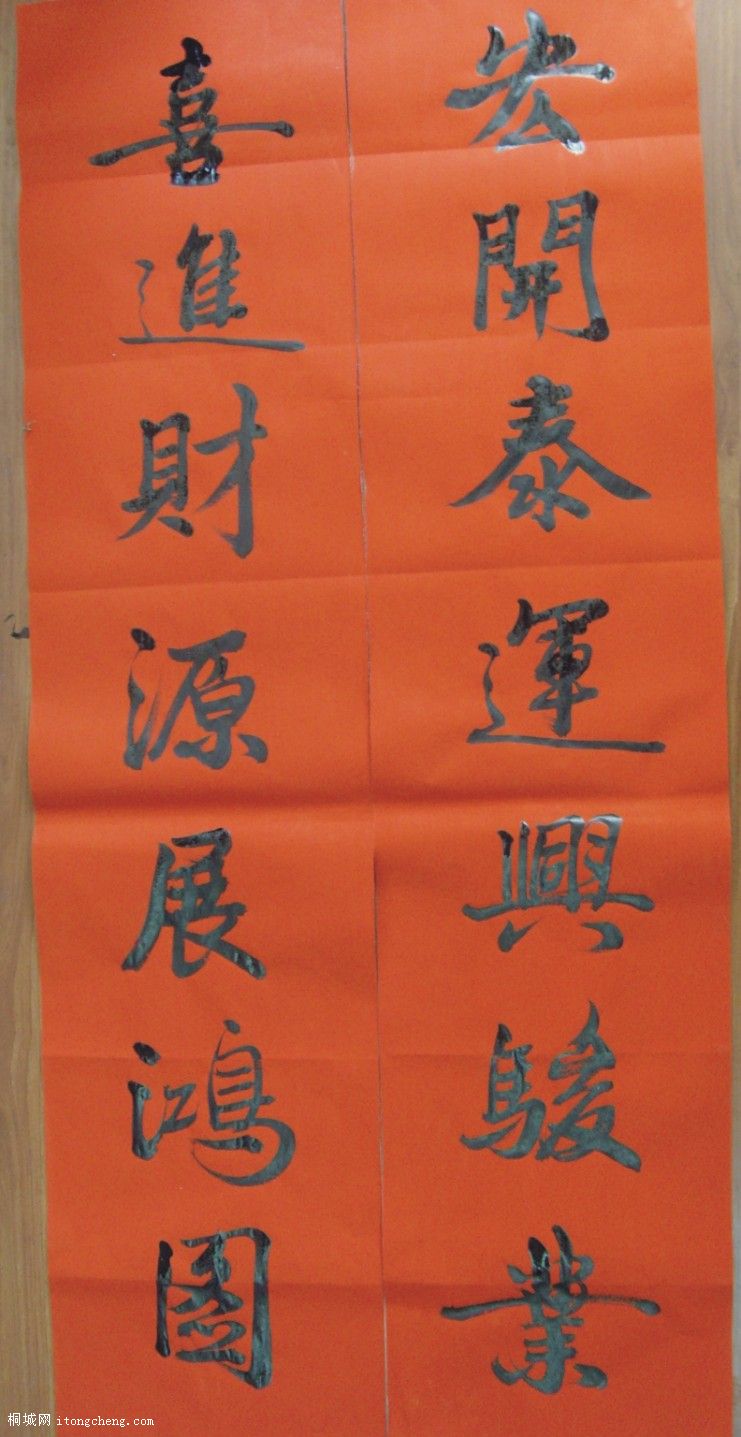 宏開泰運興駿業
喜進財源展鴻圖
桐城网 itongcheng.com